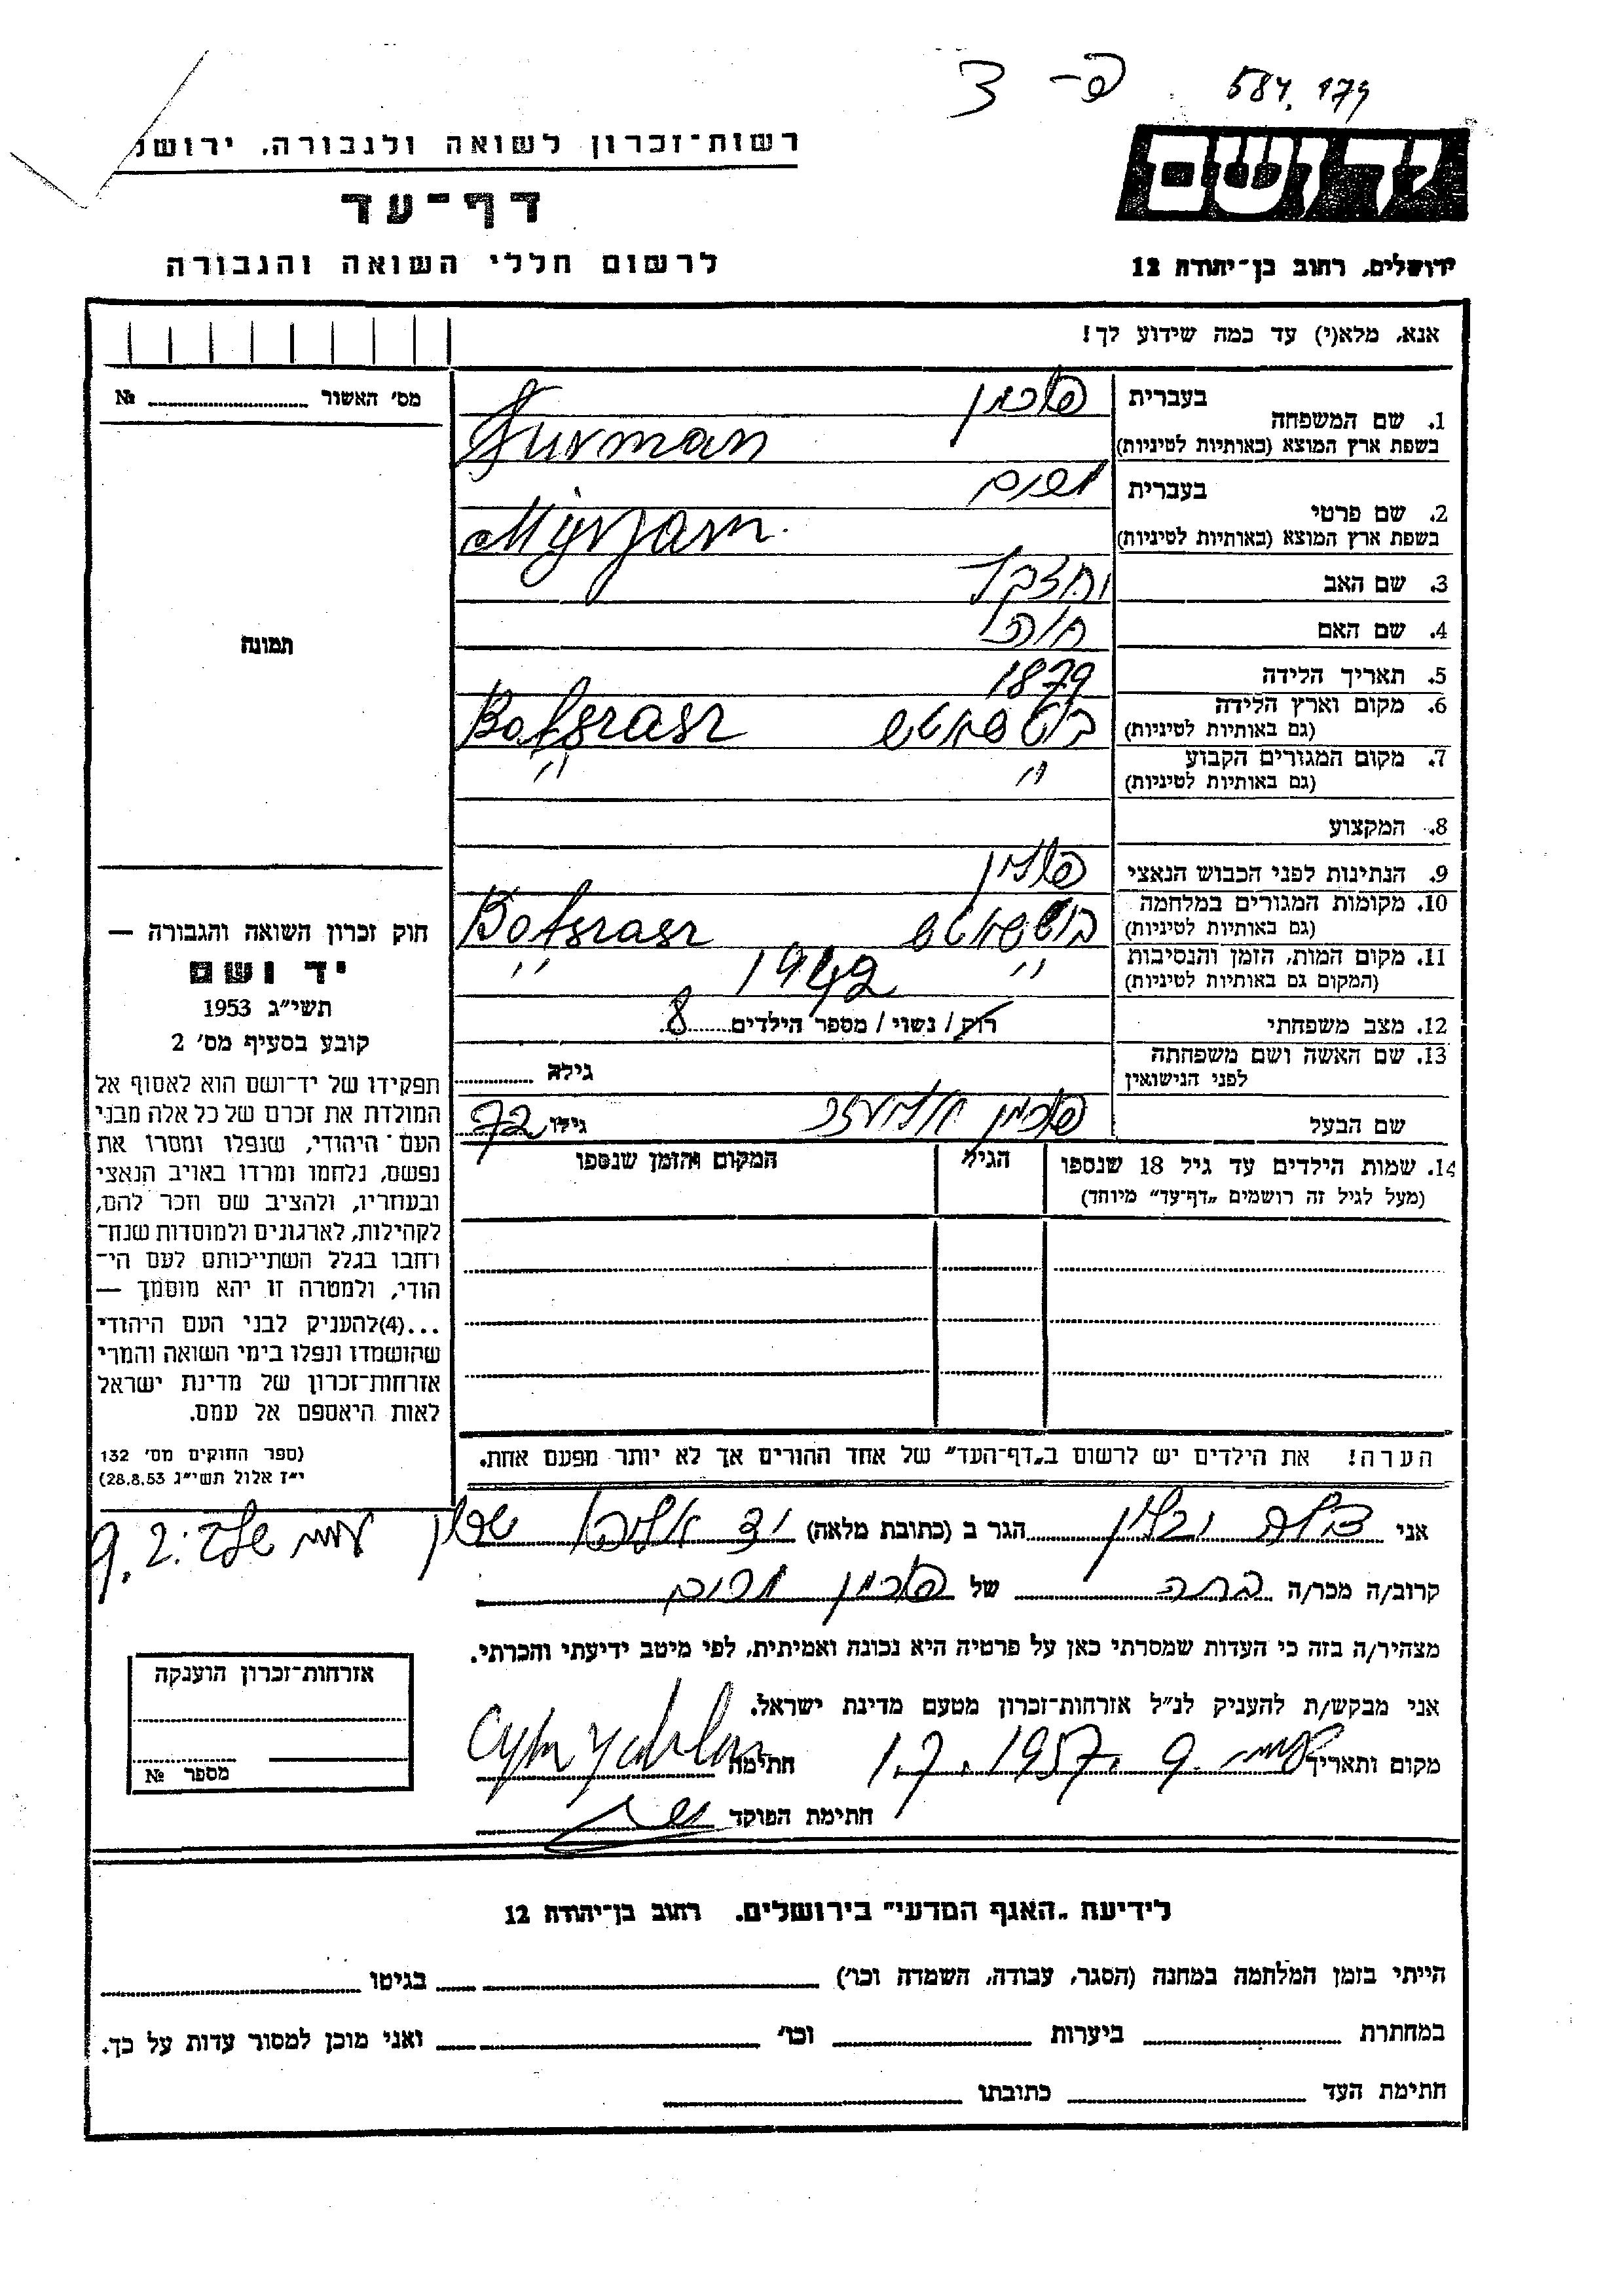 584.179
פ- 3
רשות-זכרון לשואה ולגבורה, ירושל
דף-עד
לרשום חללי השואה והגבורה
יד ושם
ירושלים, רחוב בן-יהודה 12
אנא, מלא(י) עד כמה שידוע לך!
מס' האשור № 
תמונה
1. שם המשפחה
בעברית פורמן
בשפת ארץ המוצא (באותיות לטיניות) Furman
2. שם פרטי
בעברית מרים
בשפת ארץ המוצא (באותיות לטיניות) Myrjam
3. שם האב
4. שם האם
5. תאריך הלידה 1879
6. מקום וארץ הלידה
(גם באותיות לטיניות)
7. מקום המגורים הקבוע " "
(גם באותיות לטיניות)
8. המקצוע
9. הנתינות לפני הכבוש הנאצי פולין
10. מקומות המגורים במלחמה
(גם באותיות לטיניות)
11. מקום המות, הזמן והנסיבות " 1942 "
(המקום גם באותיות לטיניות)
12. מצב משפחתי רוק/ נשוי / מספר הילדים 8
13. שם האשה ושם משפחתה גילה
לפני הנישואין
שם הבעל פורמן גילו 72
14. שמות הילדים עד גיל 18 שנספו הגיל המקום והזמן שנספו
(מעל לגיל זה רושמים „דף-עד" מיוחד)
הערה! את הילדים יש לרשום ב„דף-העד" של אחד ההורים אך לא יותר מפעם אחת.
חוק זכרון השואה והגבורה —
יד ושם
תשי"ג 1953
קובע בסעיף מס' 2
תפקידו של יד-ושם הוא לאסוף אל
המולדת את זכרם של כל אלה מבני
העם היהודי, שנפלו ומסרו את
נפשם, נלחמו ומרדו באויב הנאצי
ובעוזריו, ולהציב שם וזכר להם,
לקהילות, לארגונים ולמוסדות שנח-
רחבו בגלל השתייכותם לעם הי-
הודי, ולמטרה זו יהא מוסמך —
...(4)להעניק לבני העם היהודי
שהושמדו ונפלו בימי השואה והמרי
אזרחות-זכרון של מדינת ישראל
לאות היאספם אל עמם.
(ספר החוקים מס' 132
י"ז אלול תשי"ג 28.8.53)
אני הגר ב (כתובת מלאה)
קרוב/ה מכר/ה של פורמן מרים
מצהיר/ה בזה כי העדות שמסרתי כאן על פרטיה היא נכונה ואמיתית, לפי מיטב ידיעתי והכרתי.
אני מבקש/ת להעניק לנ"ל אזרחות-זכרון מטעם מדינת ישראל.
מקום ותאריך 1.7.1957. חתימה
חתימת הפוקד
אזרחות-זכרון הוענקה
מספר №
לידיעת „האגף המדעי" בירושלים, רחוב בן-יהודה 12
הייתי בזמן המלחמה במחנה (הסגר, עבודה, השמדה וכו') בגיטו
במחתרת ביערות וכו' ואני מוכן למסור עדות על כך.
חתימת העד כתובתו